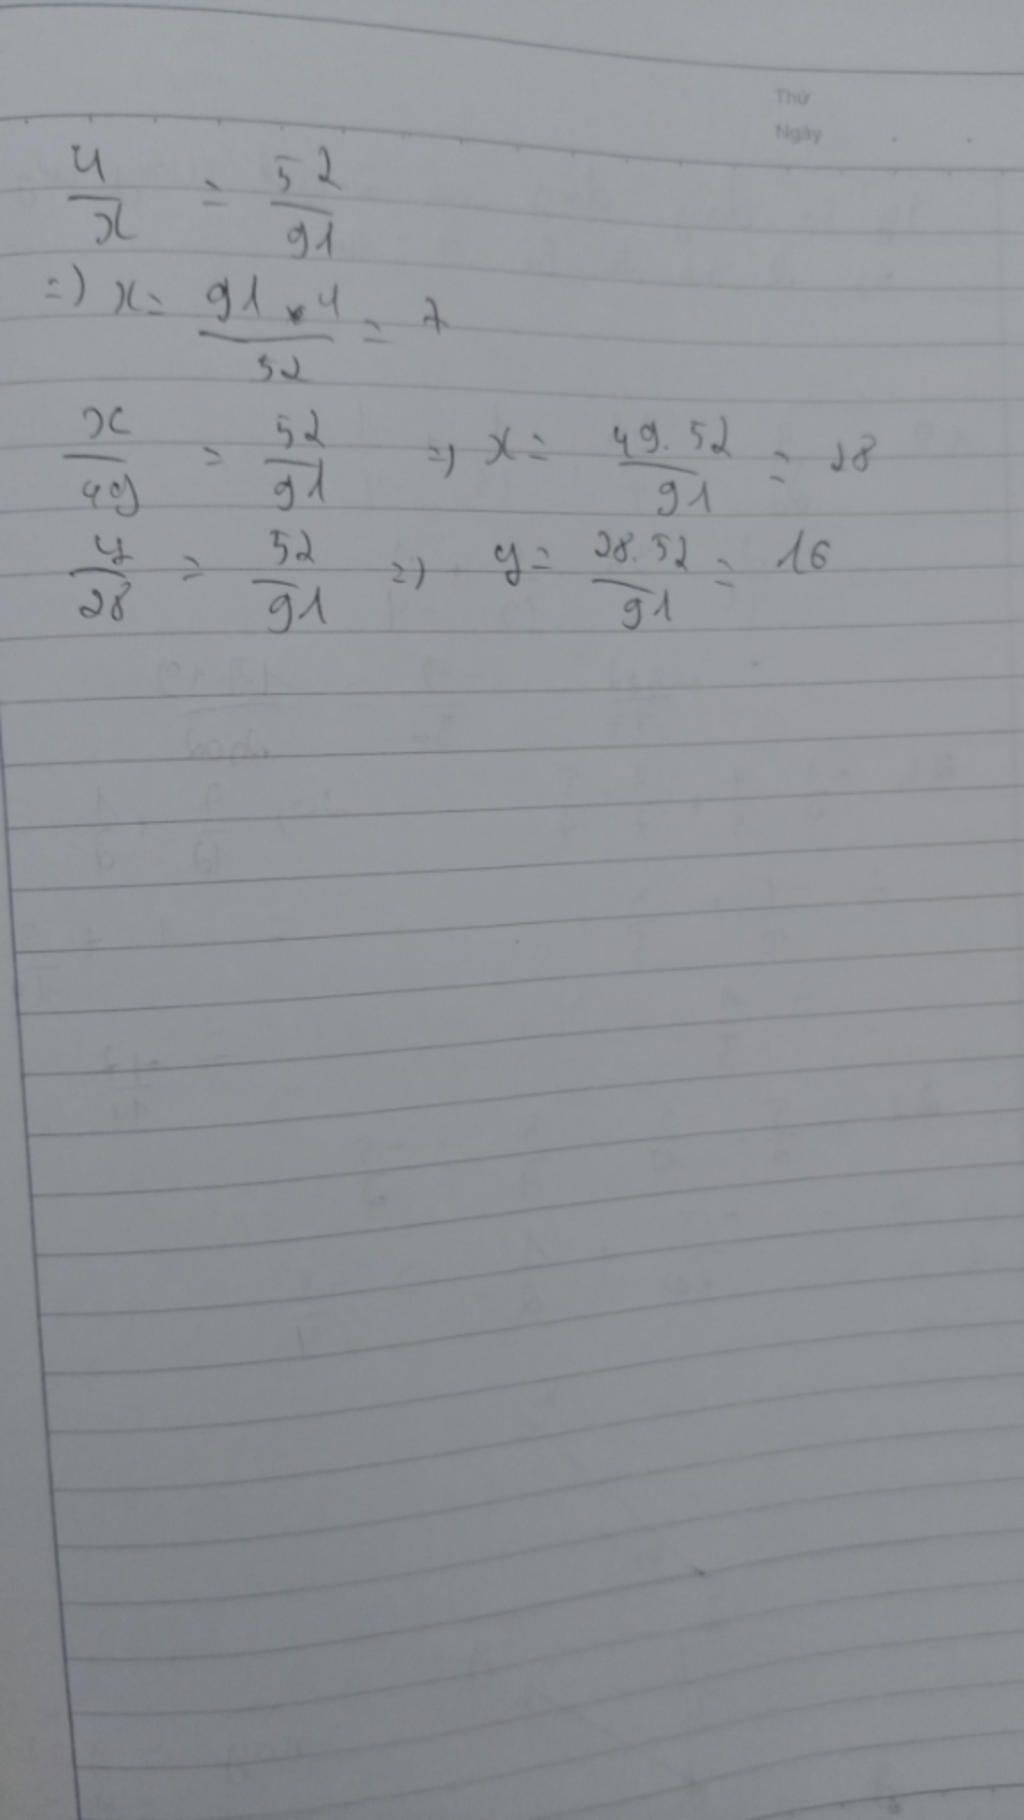 Thứ
Ngày
4/x = 52/91
=) x = 91 . 4/52 = 7
x/49 = 52/91 =) x = 49.52/91 = 28
y/28 = 52/91 =) y = 28.52/91 = 16